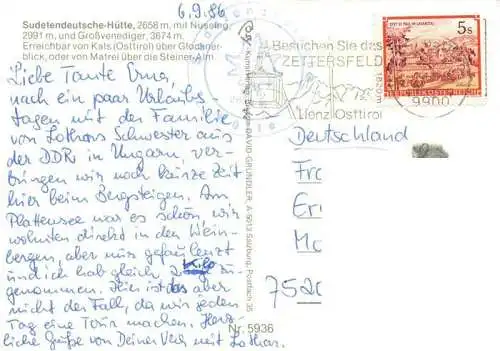 6.9.86
Sudetendeutsche-Hütte, 2658 m, mit Nussing,
2991 m, und Großvenediger, 3674 m.
Erreichbar von Kals (Osttirol) über Glockner-
blick, oder von Matrei über die Steiner-Alm.
Liebe Tante Erna,
nach ein paar Urlaubs
tagen mit der Familie
von Lothars Schwester aus
der DDR in Ungarn, ver-
bringen wir noch kurze Zeit
hier beim Bergsteigen. Am
Plattensee war es schön, wir
wohnten direkt in den Wein-
bergen, aber nur gefaulenzt
und ich hab gleich 2 Kilo zu-
genommen. Hier ist das aber
nicht der Fall, da wir jeden
Tag eine Tour machen. Herz-
liche Grüße von Deiner mit Lothar.
Nr. 5936
DAVID GRUNDLER, A-5013 Salzburg, Postfach 35
Besuchen Sie das
ZETTERSFELD
1810m
Lienz Osttirol
9900
5s
REPUBLIK ÖSTERREICH
Deutschland
Fr
Er
Mo
7520